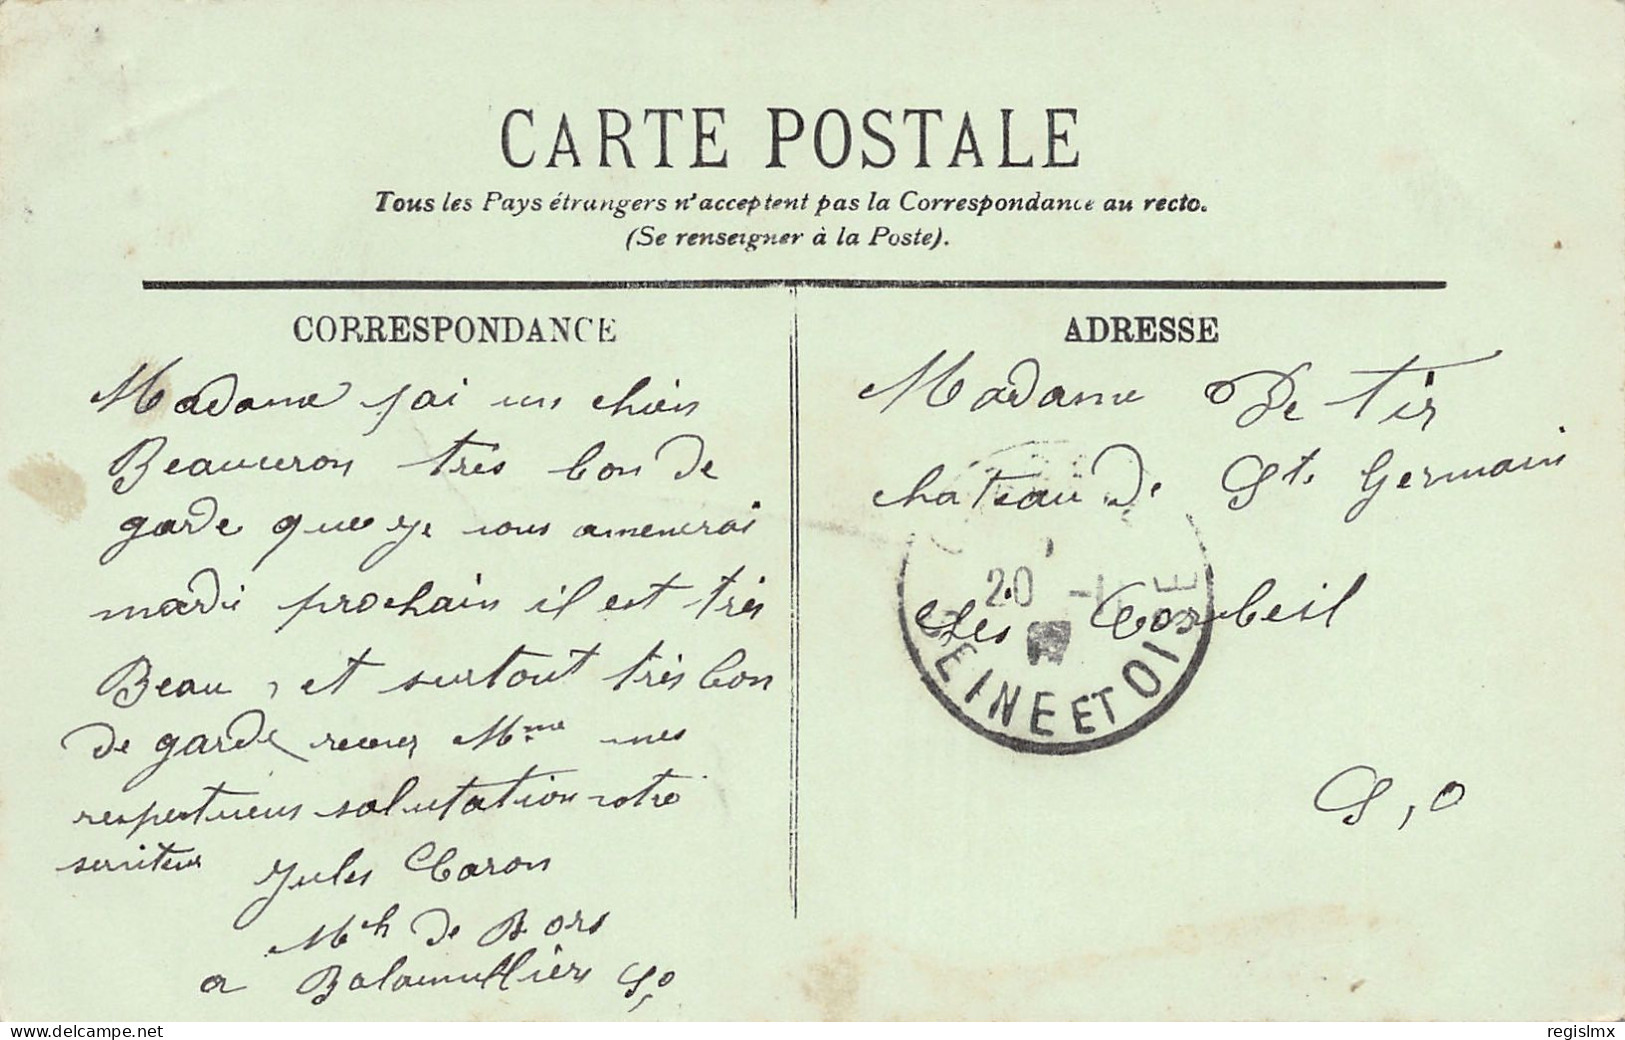 CARTE POSTALE
Tous les Pays étrangers n'acceptent pas la Correspondance au recto.
(Se renseigner à la Poste).
CORRESPONDANCE
Madame jai un chien
Beauceron très bon de
garde que je vous amenerai
mardi prochain il est très
Beau, et surtout très bon
de garde recever Mme mes
respectueus salutation votre
serviteur Jules Caron
Mch de Bors
a
So
ADRESSE
Madame De
chateau De St Germain
les Corbeil
S, O
20
SEINE ET OISE
delcampe.net
regislmx